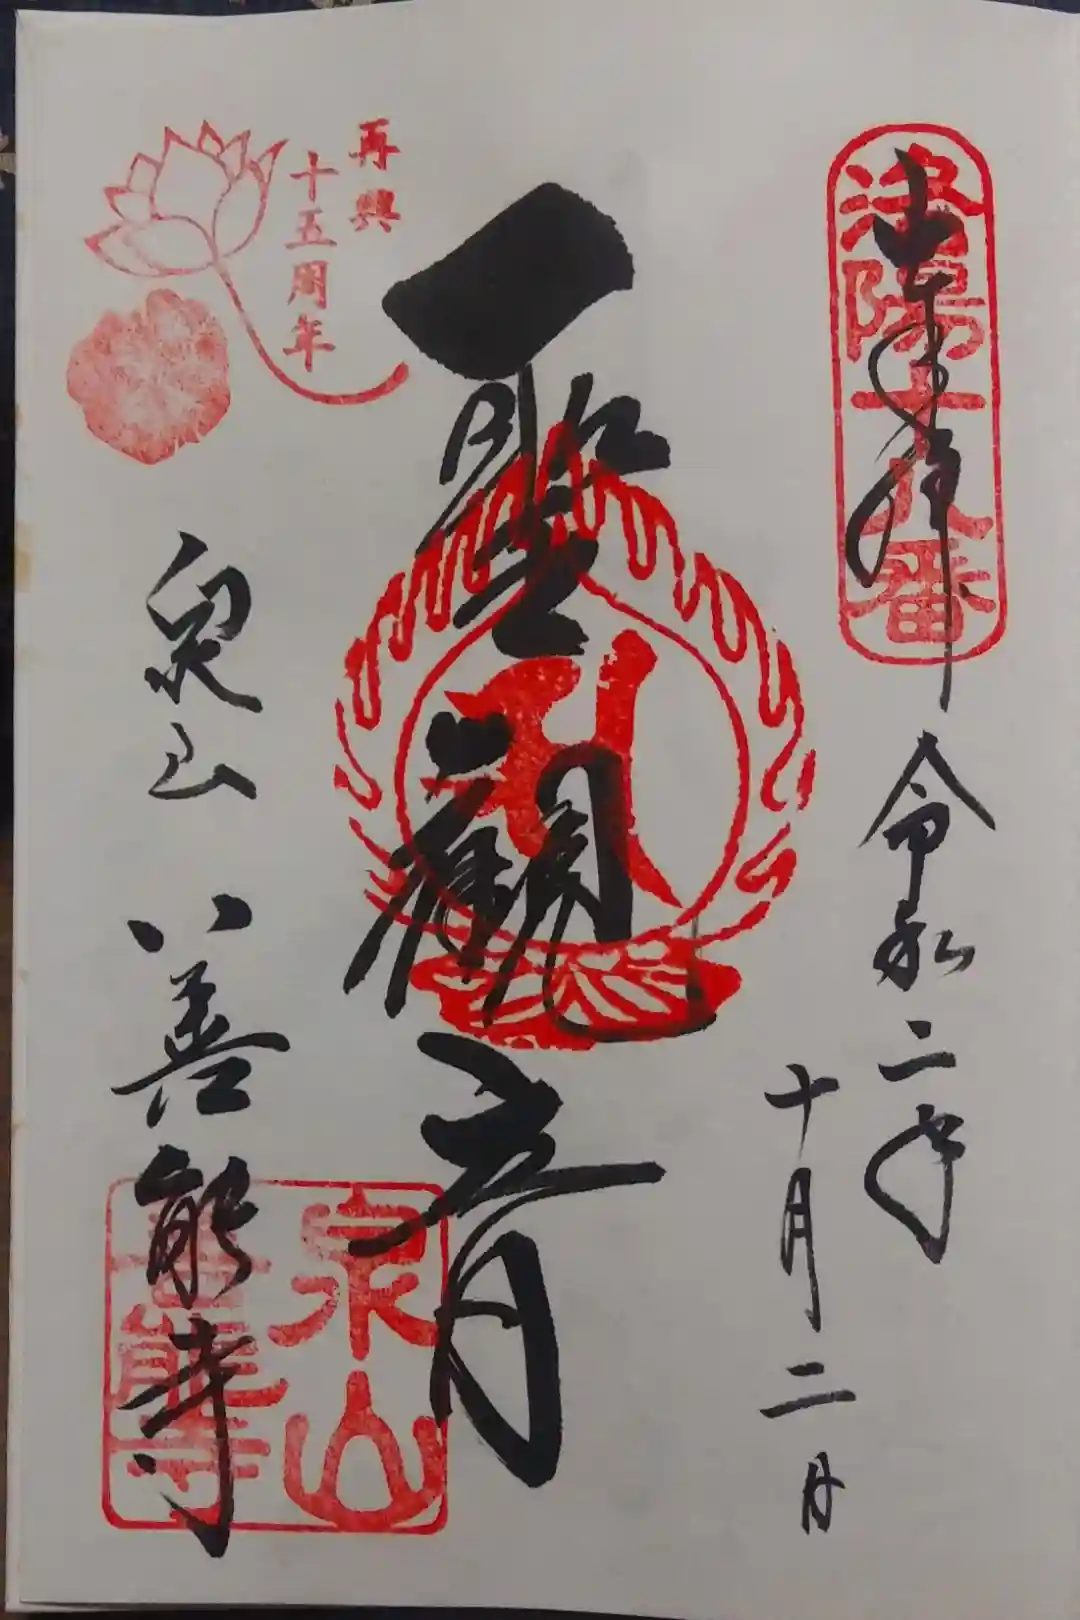 奉拝
洛陽十八番
令和二年
十月二日
聖観音
再興
十五周年
泉山
善能寺
泉山
善能寺